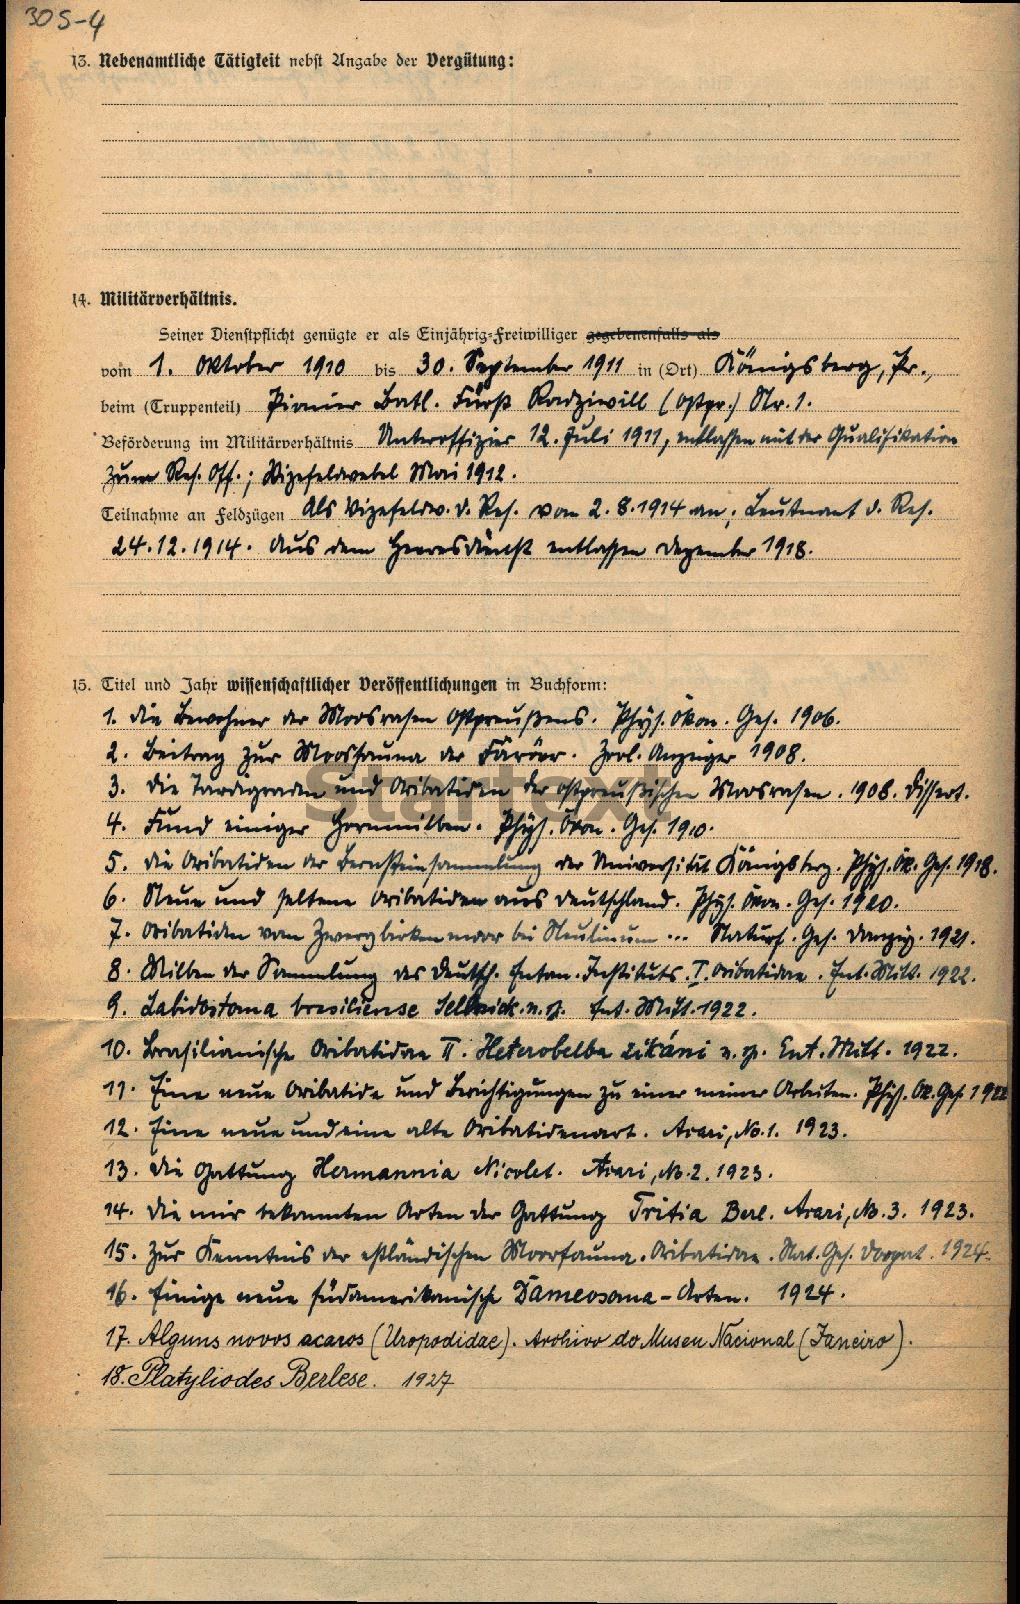 305-4
13. Nebenamtliche Tätigkeit nebst Angabe der Vergütung:
14. Militärverhältnis.
Seiner Dienstpflicht genügte er als Einjährig-Freiwilliger gegebenenfalls als
vom 1. Oktober 1910 bis 30. September 1911 in (Ort) Königsberg, Pr.,
beim (Truppenteil) Pionier Batl. Fürst Radziwill (Ostpr.) Nr. 1.
Beförderung im Militärverhältnis Unteroffizier 12. Juli 1911, entlassen mit der Qualifikation
zum Res. Off.; Vizefeldwebel Mai 1912.
Teilnahme an Feldzügen Als Vizefeldw. d. Res. vom 2.8.1914 an; Leutnant d. Res.
24.12.1914. Aus dem Heeresdienst entlassen Dezember 1918.
15. Titel und Jahr wissenschaftlicher Veröffentlichungen in Buchform:
1. Die Bewohner der Moosrasen Ostpreußens. Phys. ökon. Ges. 1906.
2. Beitrag zur Moosfauna der Färöer. Zool. Anzeiger 1908.
3. Die Tardigraden und Oribatiden der ostpreußischen Moosrasen. 1908. Dissert.
Startext
4. Fund einiger Hornmilben. Phys. Ökon. Ges. 1910.
5. Die Oribatiden der Bernsteinsammlung der Universität Königsberg. Phys. Ök. Ges. 1918.
6. Neue und seltene Oribatiden aus Deutschland. Phys. Ökon. Ges. 1920.
7. Oribatiden vom Zwergbirkenmoor bei Neulinum ... Naturf. Ges. Danzig. 1921.
8. Milben der Sammlung des Deutsch. Entom. Instituts. I. Oribatidae. Ent. Mitt. 1922.
9. Labidostoma brasiliense Sellnick. n. sp. Ent. Mitt. 1922.
10. Brasilianische Oribatidae II. Heterobelba zikáni n. sp. Ent. Mitt. 1922.
11. Eine neue Oribatide und Berichtigungen zu einer meiner Arbeiten. Phys. Ök. Ges. 1922
12. Eine neue und eine alte Oribatidenart. Acari, No. 1. 1923.
13. Die Gattung Hermannia Nicolet. Acari, No. 2. 1923.
14. Die mir bekannten Arten der Gattung Tritia Berl. Acari, No. 3. 1923.
15. Zur Kenntnis der estländischen Moorfauna. Oribatidae. Nat. Ges. Dorpat. 1924.
16. Einige neue südamerikanische Dameosoma-Arten. 1924.
17. Alguns novos acaros (Uropodidae). Archivo do Museu Nacional (Janeiro).
18. Platyliodes Berlese. 1927